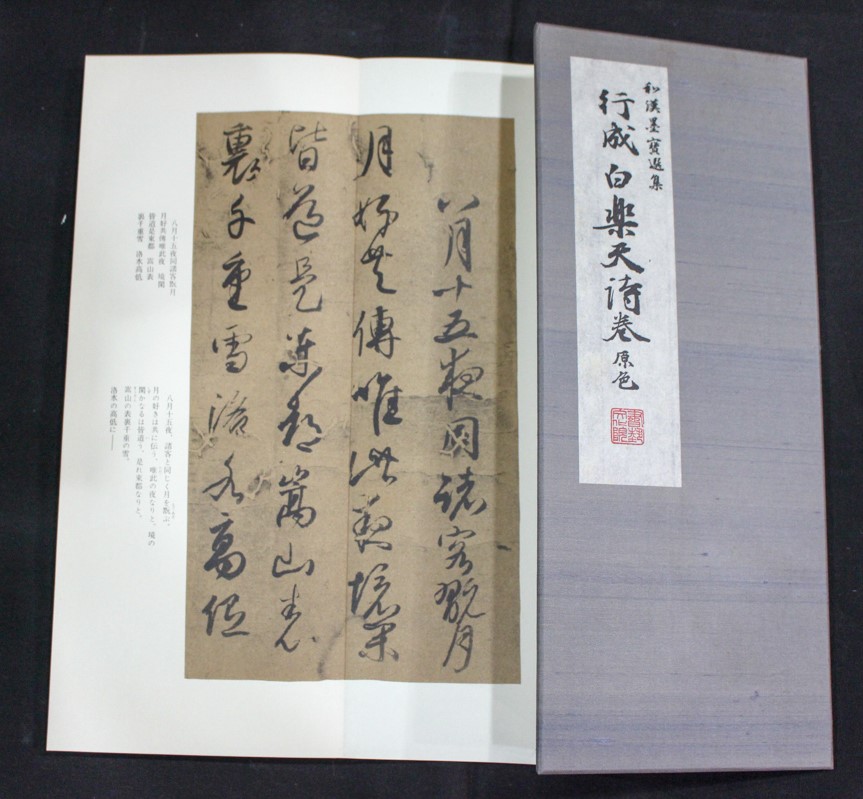 和漢墨寶選集
行成 白楽天詩巻 原色
八月十五夜同諸客翫月
月好共傳唯此夜境閑
皆道是東都嵩山表
裏千重雪洛水高低
八月十五夜同諸客翫月
月好共傳唯此夜 境閑
皆道是東都 嵩山表
裏千重雪 洛水高低
八月十五夜、諸客と同じく月を翫ぶ。
月の好きは共に伝う、唯此の夜なりと、境の
閑かなるは皆道う、是れ東都なりと。
嵩山の表裏千重の雪。
洛水の高低に——